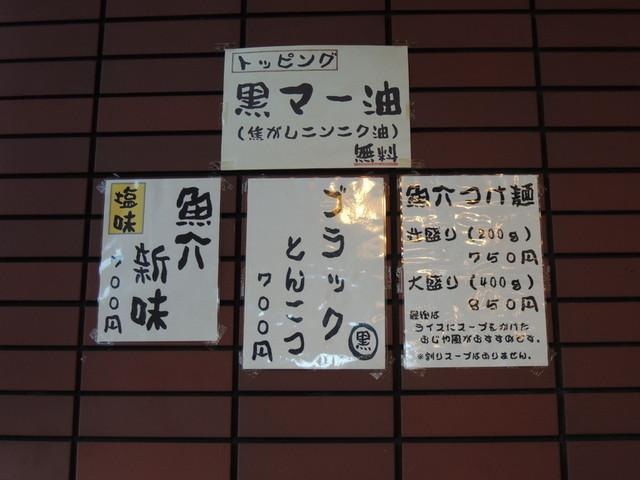 トッピング
黒マー油
(焦がしニンニク油)
無料
塩味
魚介
新味
700円
ブラック
とんこつ
700円
黒
魚介つけ麺
並盛り(200g)
750円
大盛り(400g)
850円
最後は
ライスにスープをかけた
おじや風がおすすめです。
※割りスープはありません。